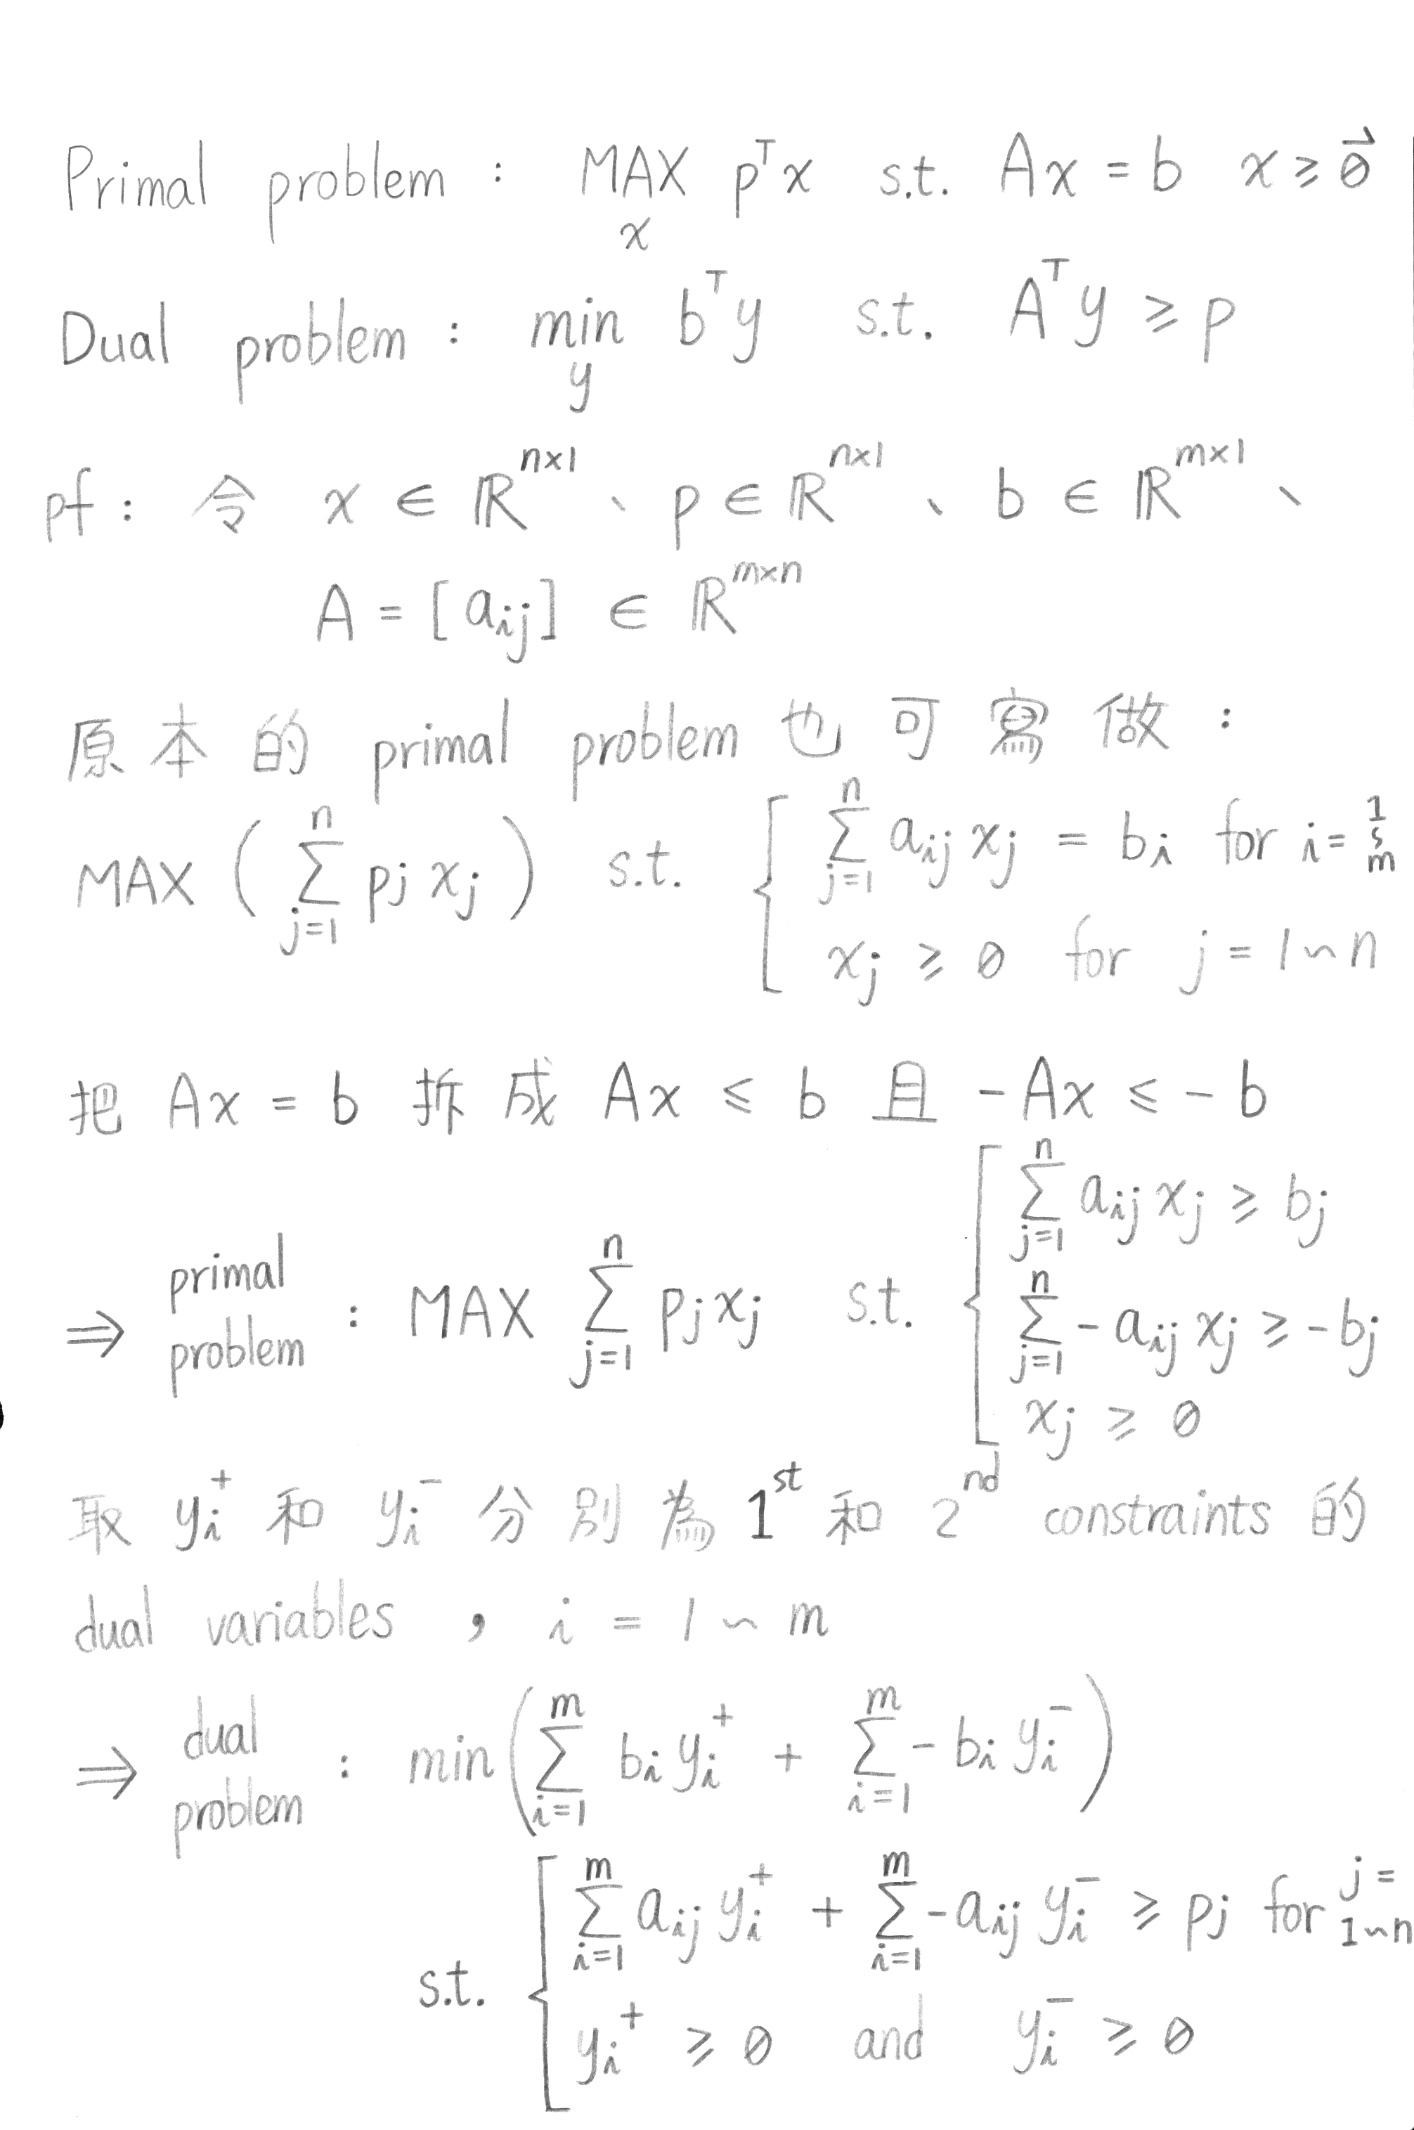 Primal problem : MAX pᵀx s.t. Ax = b x ≥ 0⃗
x
Dual problem : min bᵀy s.t. Aᵀy ≥ p
y
pf : 令 x ∈ ℝⁿˣ¹ 、 p ∈ ℝⁿˣ¹ 、 b ∈ ℝᵐˣ¹ 、
A = [aᵢⱼ] ∈ ℝᵐˣⁿ
原本的 primal problem 也可寫做 :
MAX ( ∑ⱼ₌₁ⁿ pⱼ xⱼ ) s.t. { ∑ⱼ₌₁ⁿ aᵢⱼ xⱼ = bᵢ for i = 1~m
xⱼ ≥ 0 for j = 1~n
把 Ax = b 拆成 Ax ≤ b 且 -Ax ≤ -b
⇒ primal problem : MAX ∑ⱼ₌₁ⁿ pⱼ xⱼ s.t. { ∑ⱼ₌₁ⁿ aᵢⱼ xⱼ ≥ bⱼ
∑ⱼ₌₁ⁿ -aᵢⱼ xⱼ ≥ -bⱼ
xⱼ ≥ 0
取 yᵢ⁺ 和 yᵢ⁻ 分別為 1st 和 2nd constraints 的
dual variables , i = 1~m
⇒ dual problem : min ( ∑ᵢ₌₁ᵐ bᵢ yᵢ⁺ + ∑ᵢ₌₁ᵐ -bᵢ yᵢ⁻ )
s.t. { ∑ᵢ₌₁ᵐ aᵢⱼ yᵢ⁺ + ∑ᵢ₌₁ᵐ -aᵢⱼ yᵢ⁻ ≥ pⱼ for j = 1~n
yᵢ⁺ ≥ 0 and yᵢ⁻ ≥ 0